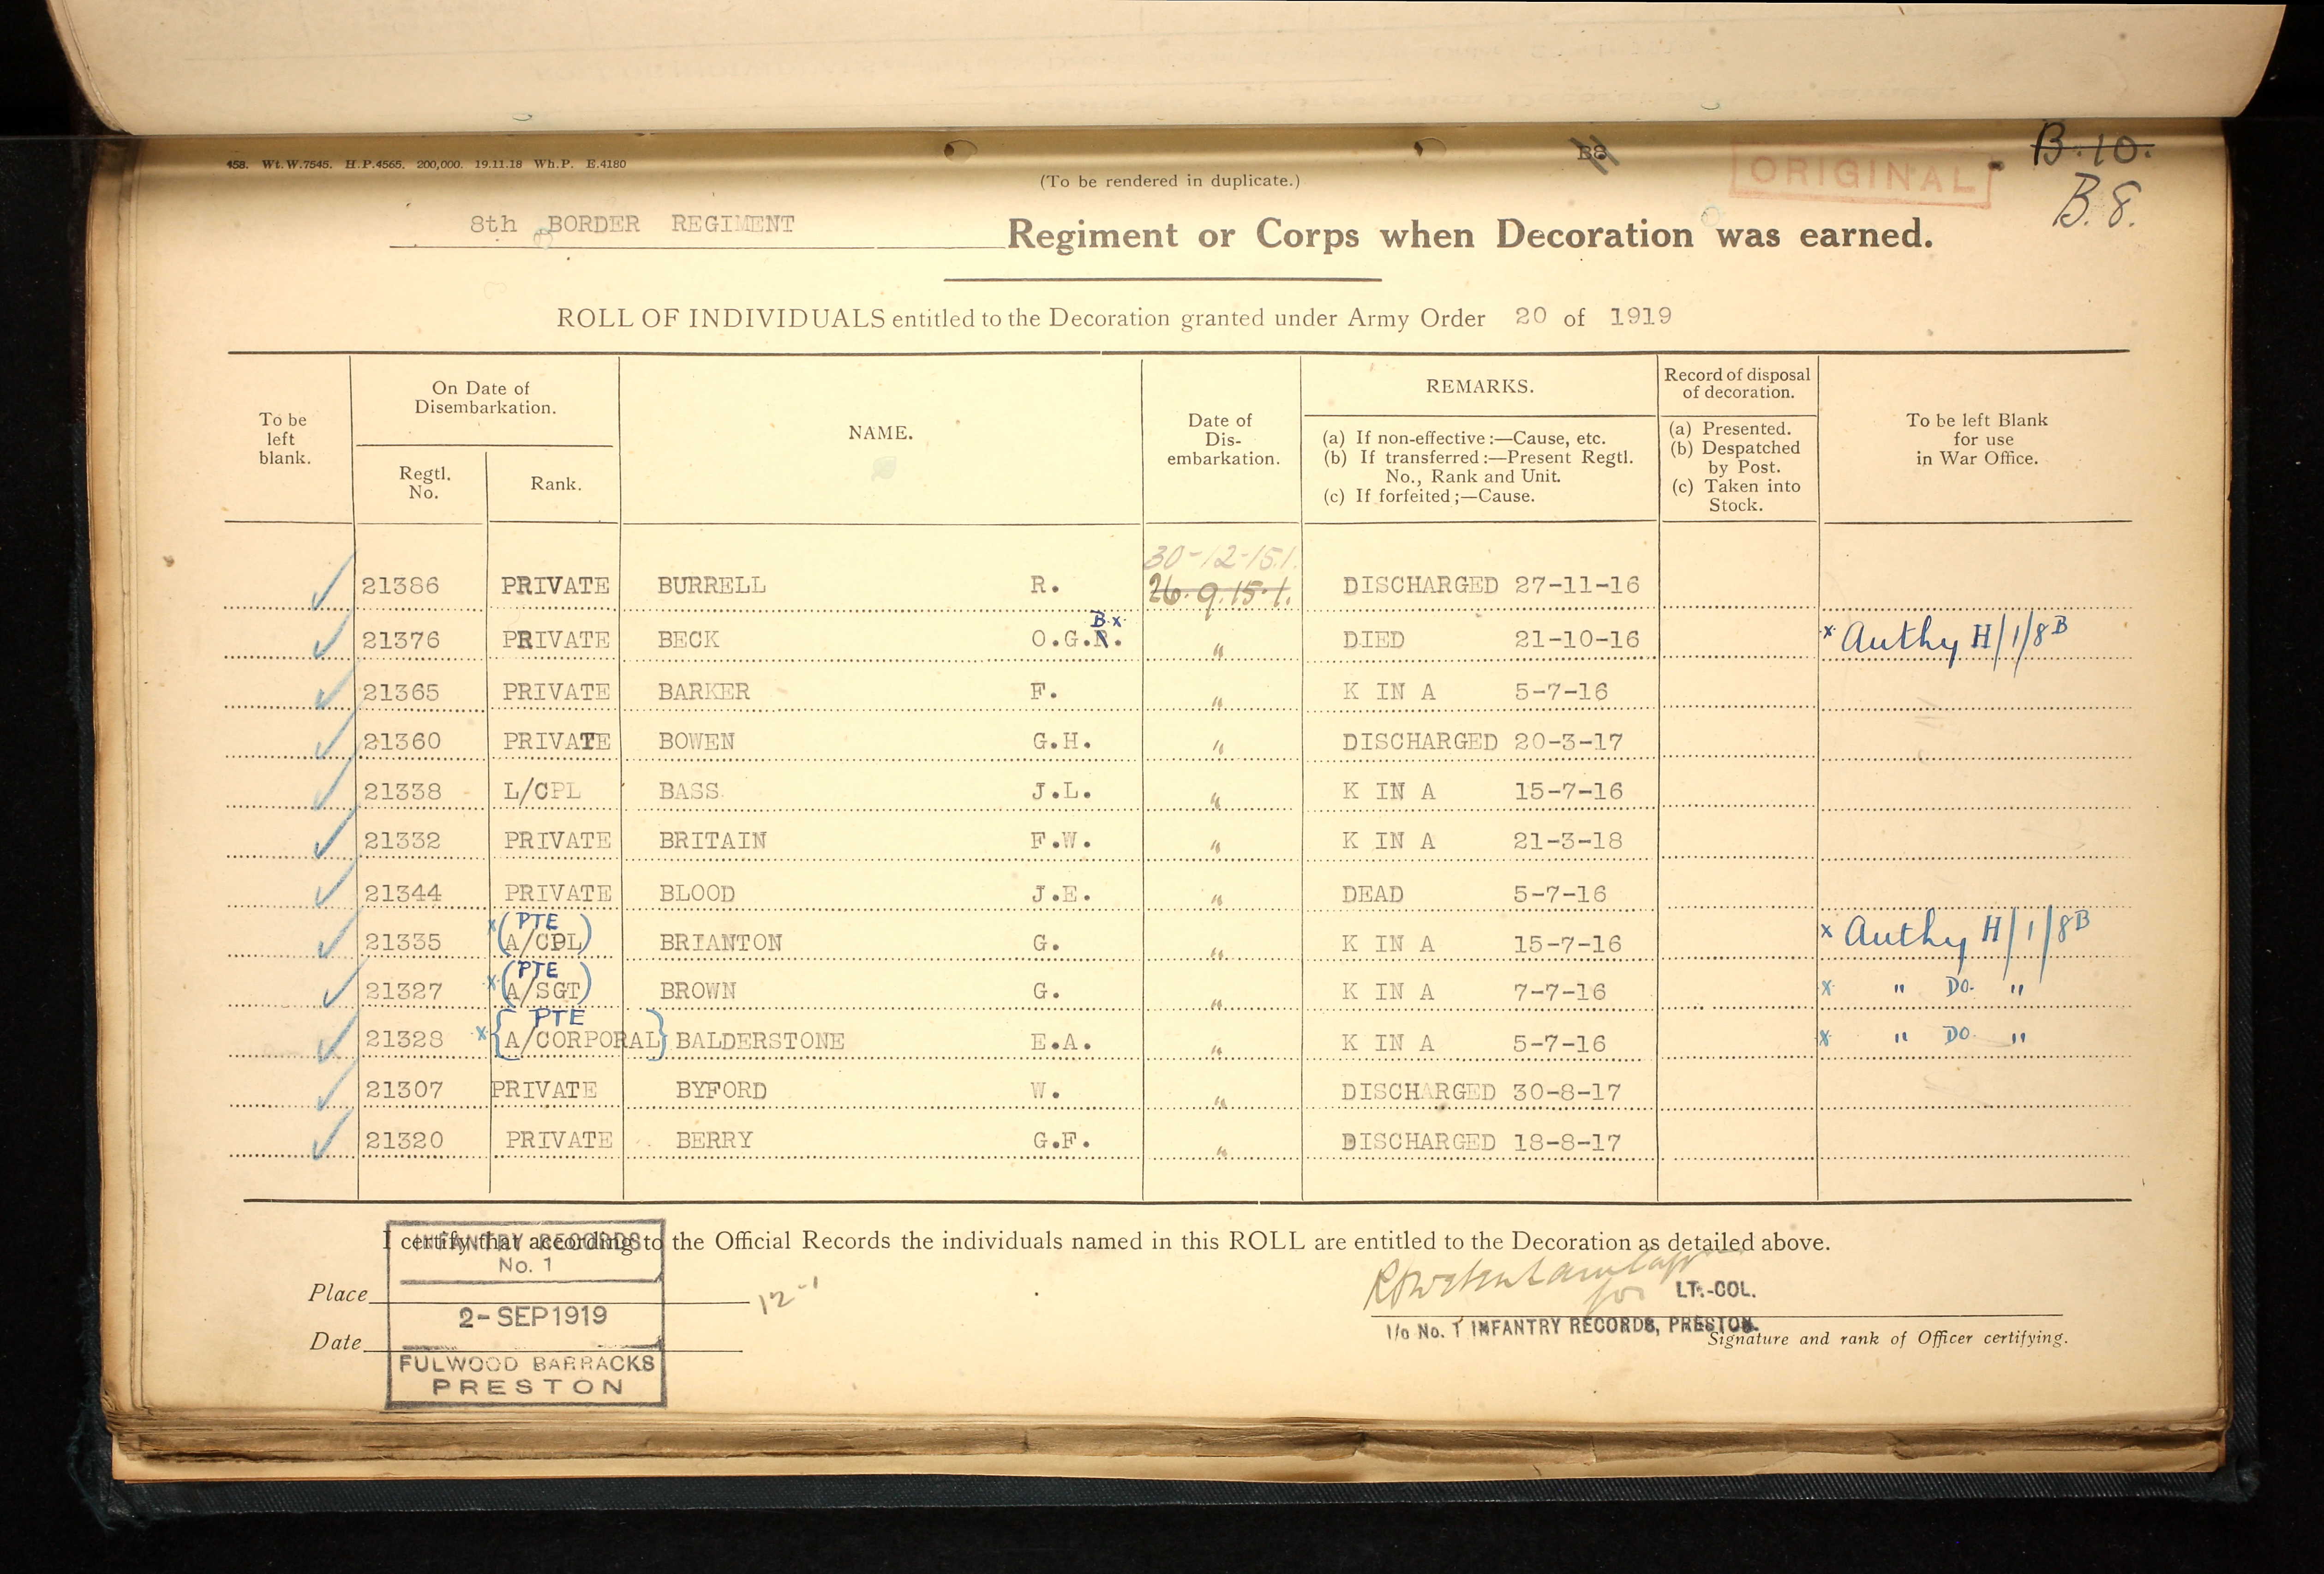 458. Wt.W.7545. H.P.4565. 200,000. 19.11.18 Wh.P. E.4180
B8
B.10.
(To be rendered in duplicate.)
ORIGINAL
B.8.
8th BORDER REGIMENT Regiment or Corps when Decoration was earned.
ROLL OF INDIVIDUALS entitled to the Decoration granted under Army Order 20 of 1919
To be left blank.
On Date of Disembarkation.
Regtl. No.
Rank.
NAME.
Date of Dis-embarkation.
REMARKS.
(a) If non-effective :—Cause, etc.
(b) If transferred :—Present Regtl. No., Rank and Unit.
(c) If forfeited ;—Cause.
Record of disposal of decoration.
(a) Presented.
(b) Despatched by Post.
(c) Taken into Stock.
To be left Blank for use in War Office.
30-12-15.1.
21386 PRIVATE BURRELL R. 26.9.15.1. DISCHARGED 27-11-16
B x
21376 PRIVATE BECK O.G.R. " DIED 21-10-16 x Authy H/1/8B
21365 PRIVATE BARKER F. " K IN A 5-7-16
21360 PRIVATE BOWEN G.H. " DISCHARGED 20-3-17
21338 L/CPL BASS J.L. " K IN A 15-7-16
21332 PRIVATE BRITAIN F.W. " K IN A 21-3-18
21344 PRIVATE BLOOD J.E. " DEAD 5-7-16
x (PTE
21335 A/CPL) BRIANTON G. " K IN A 15-7-16 x Authy H/1/8B
x (PTE
21327 A/SGT) BROWN G. " K IN A 7-7-16 x " DO. "
PTE
21328 x {A/CORPORAL} BALDERSTONE E.A. " K IN A 5-7-16 x " DO. "
21307 PRIVATE BYFORD W. " DISCHARGED 30-8-17
21320 PRIVATE BERRY G.F. " DISCHARGED 18-8-17
I certify that according to the Official Records the individuals named in this ROLL are entitled to the Decoration as detailed above.
INFANTRY RECORDS
No. 1
Place
12-1
for LT.-COL.
2-SEP 1919
I/o No. 1 INFANTRY RECORDS, PRESTON.
Date
Signature and rank of Officer certifying.
FULWOOD BARRACKS
PRESTON